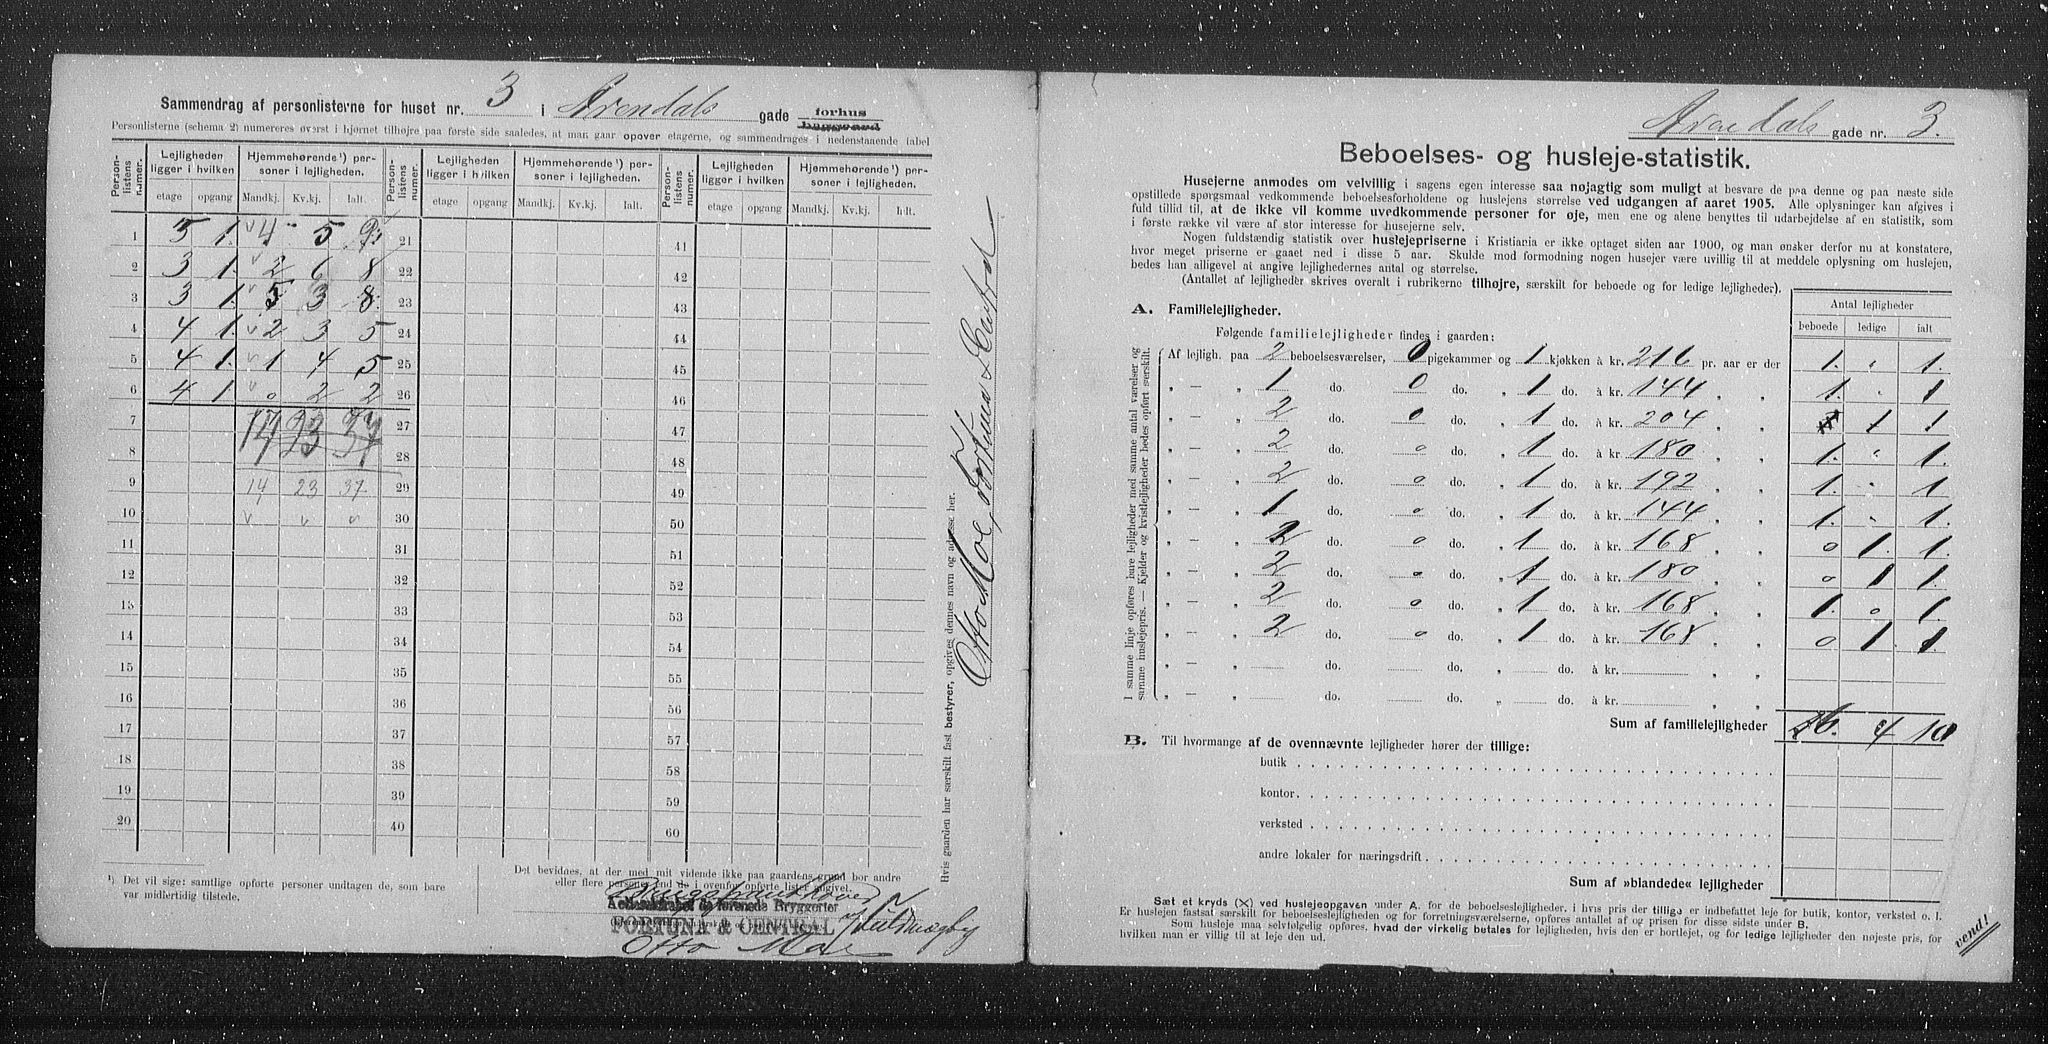 Sammendrag af personlisterne for huset nr. 3 i Arendals gade forhus
baggaard
Personlisterne (schema 2) numereres øverst i hjørnet tilhøjre paa første side saaledes, at man gaar opover etagerne, og sammendrages i nedenstaaende tabel
Person-listens numer. Lejligheden ligger i hvilken Hjemmehørende¹) personer i lejligheden. Person-listens numer. Lejligheden ligger i hvilken Hjemmehørende¹) personer i lejligheden. Person-listens numer. Lejligheden ligger i hvilken Hjemmehørende¹) personer i lejligheden.
etage opgang Mandkj. Kv.kj. Ialt. etage opgang Mandkj. Kv.kj. Ialt. etage opgang Mandkj. Kv.kj. Ialt.
1 1. 4 5 9 21 41
2 3 1. 2 6 8 22 42
3 3 1. 5 3 8. 23 43
4 4 1. 2 3 5 24 44
5 4 1. 1 4 5 25 45
6 4 1 0 2 2 26 46
7 14 23 37 27 47
8 28 48
9 14 23 37 29 49
10 30 50
11 31 51
12 32 52
13 33 53
14 34 54
15 35 55
16 36 56
17 37 57
18 38 58
19 39 59
20 40 60
¹) Det vil sige: samtlige opførte personer undtagen de, som bare
var midlertidig tilstede.
Det bevidnes, at der med mit vidende ikke paa gaardens grund bor andre
eller flere personer end de i ovenfor opførte lister opgivet.
Aktieselskabet de forenede Bryggerier
FORTUNA & CENTRAL
Otto Moe
Hvis gaarden har særskilt fast bestyrer, opgives dennes navn og adresse her.
Otto Moe, Fortuna & Central
Arendals gade nr. 3.
Beboelses- og husleje-statistik.
Husejerne anmodes om velvillig i sagens egen interesse saa nøjagtig som muligt at besvare de paa denne og paa næste side
opstillede spørgsmaal vedkommende beboelsesforholdene og huslejens størrelse ved udgangen af aaret 1905. Alle oplysninger kan afgives i
fuld tillid til, at de ikke vil komme uvedkommende personer for øje, men ene og alene benyttes til udarbejdelse af en statistik, som
i første række vil være af stor interesse for husejerne selv.
Nogen fuldstændig statistik over huslejepriserne i Kristiania er ikke optaget siden aar 1900, og man ønsker derfor nu at konstatere,
hvor meget priserne er gaaet ned i disse 5 aar. Skulde mod formodning nogen husejer være uvillig til at meddele oplysning om huslejen,
bedes han alligevel at angive lejlighedernes antal og størrelse.
(Antallet af lejligheder skrives overalt i rubrikerne tilhøjre, særskilt for beboede og for ledige lejligheder).
Antal lejligheder
beboede ledige ialt
A. Familielejligheder.
Følgende familielejligheder findes i gaarden:
I samme linje opføres bare lejligheder med samme antal værelser og
samme huslejepris. — Kjelder og kvistlejligheder bedes opført særskilt.
Af lejligh. paa 2 beboelsesværelser, 0 pigekammer og 1 kjøkken à kr. 216 pr. aar er der 1. " 1.
" — " 1 do. 0 do. " 1 do. à kr. 144 " " 1. " 1
" — " 2 do. 0 do. " 1 do. à kr. 204 " " 1 1
" — " 2 do. 0 do. " 1 do. à kr. 180 " " 1. " 1.
" — " 2 do. 0 do. " 1 do. à kr. 192 " " 1. " 1
" — " 1 do. 0 do. " 1 do. à kr. 144 " " 1. " 1.
" — " 2 do. 0 do. " 1 do. à kr. 168 " " 0 1. 1.
" — " 2 do. 0 do. " 1 do. à kr. 180 " " 0 1 1.
" — " 2 do. 0 do. " 1 do. à kr. 168 " " 1. 0 1.
" — " 2 do. 0 do. " 1 do. à kr. 168 " " 0 1 1
" — " do. do. " do. à kr. " "
" — " do. do. " do. à kr. " "
Sum af familielejligheder 6. 4 10
B. Til hvormange af de ovennævnte lejligheder hører der tillige:
butik
kontor
verksted
andre lokaler for næringsdrift
Sum af »blandede« lejligheder
Sæt et kryds (X) ved huslejeopgaven under A. for de beboelseslejligheder, i hvis pris der tillige er indbefattet leje for butik, kontor, verksted o. l.
Er huslejen fastsat særskilt for beboelseslejligheden og for forretningsværelserne, opføres antallet af og prisen for disse sidste under B.
Som husleje maa selvfølgelig opføres, hvad der virkelig betales for lejligheden, hvis den er bortlejet, og for ledige lejligheder den nøjeste pris, for
hvilken man er villig til at leje den ud.
vend!